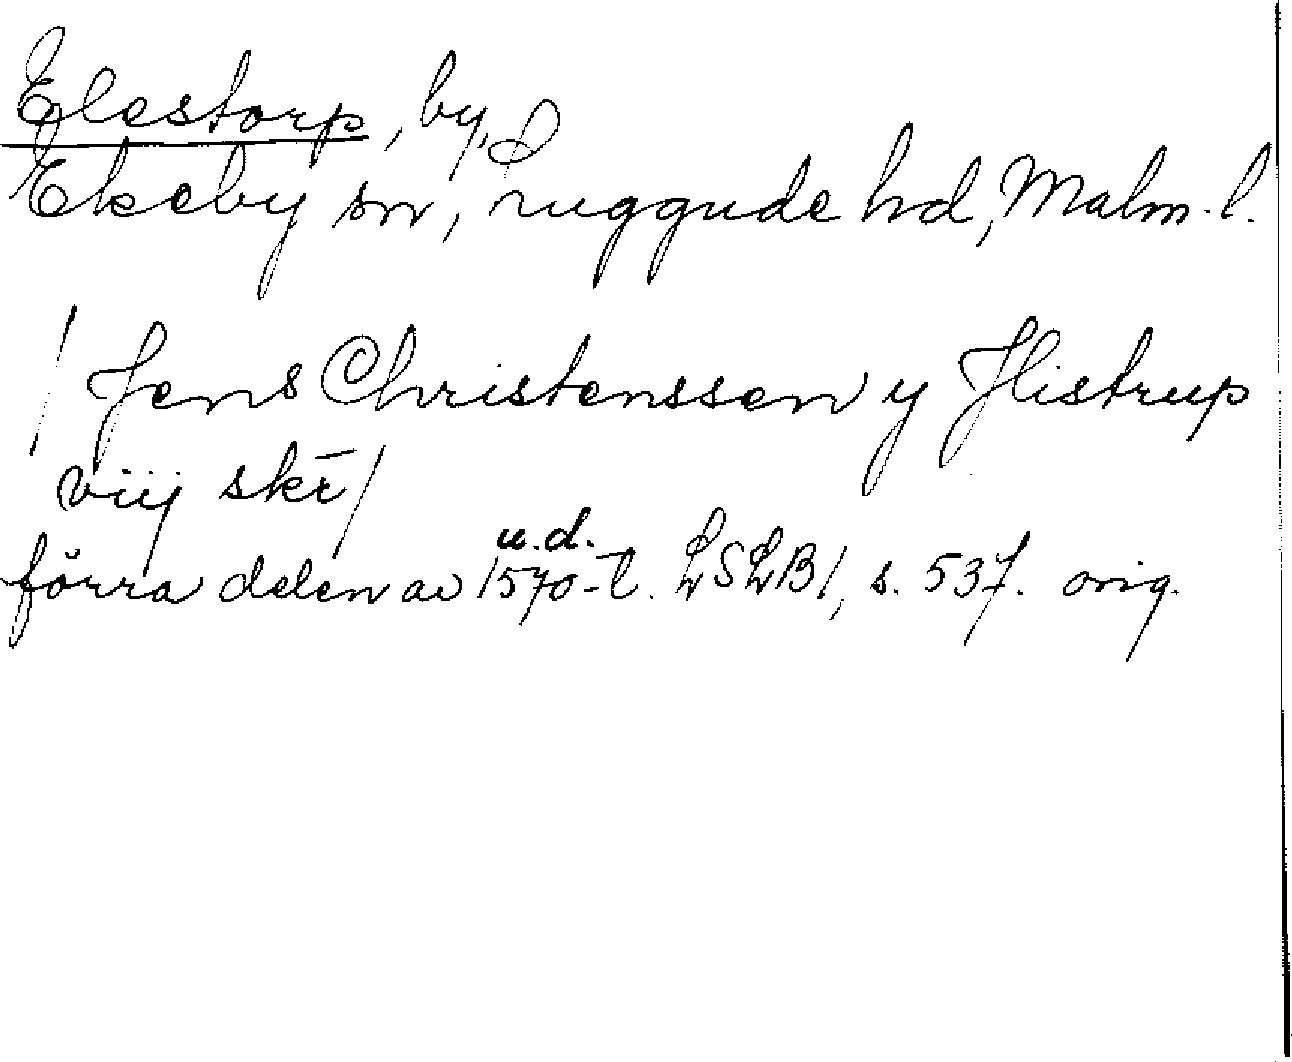 Elestorp, by,
Ekeby sn, Luggude hd, Malm. l.
/ Jens Christenssen y Jlistrup
viij skr̄ /
u.d.
förra delen av 1570-t. LSLB1, s. 537. orig.